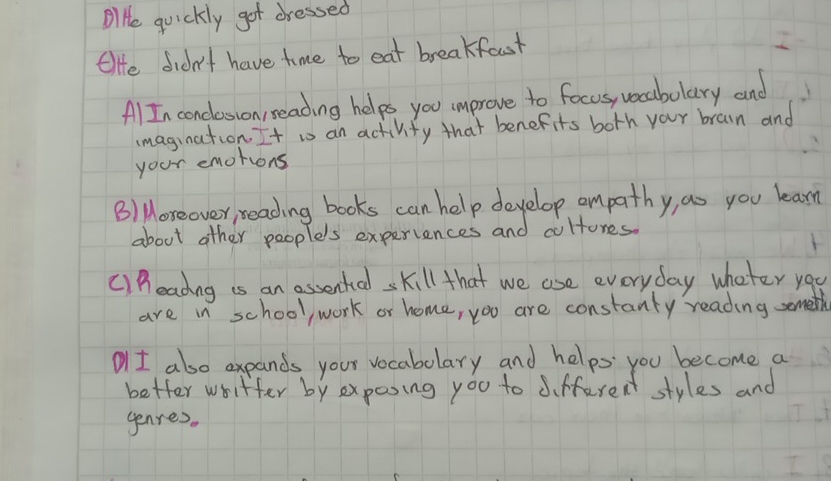 D) He quickly got dressed
E) He didn't have time to eat breakfast
A) In conclusion, reading helps you improve to focus, vocabulary and
imagination. It is an activity that benefits both your brain and
your emotions
B) Moreover, reading books can help develop empathy, as you learn
about other people's experiences and cultures.
C) Reading is an essential skill that we use everyday whater you
are in school, work or home, you are constanty reading
D) I also expands your vocabulary and helps you become a
better writter by exposing you to different styles and
genres.